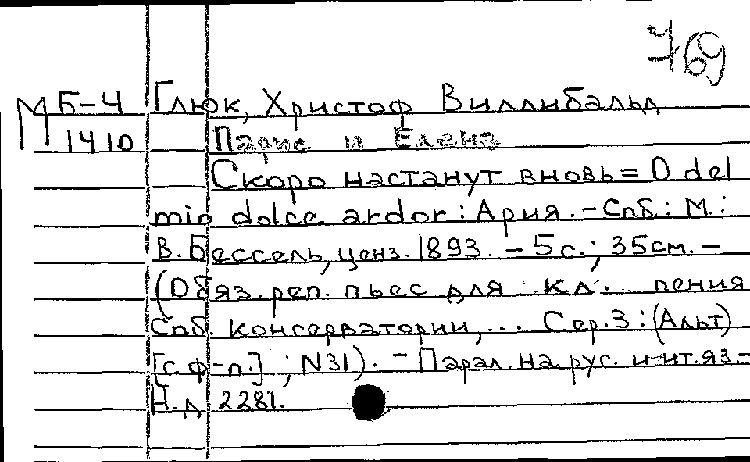 769
М Б-4 Глюк, Христоф Виллибальд
1410 Парис и Елена
Скоро настанут вновь = O del
mio dolce ardor: Ария. - Спб.: М.:
В. Бессель, ценз. 1893. - 5 с.; 35 см. -
(Обяз. реп. пьес для кл. пения
Спб. консерватории, ... Сер. 3: (Альт)
[с ф-п.]; N31). - Парал. на рус. и ит. яз. -
Н.д. 2281.